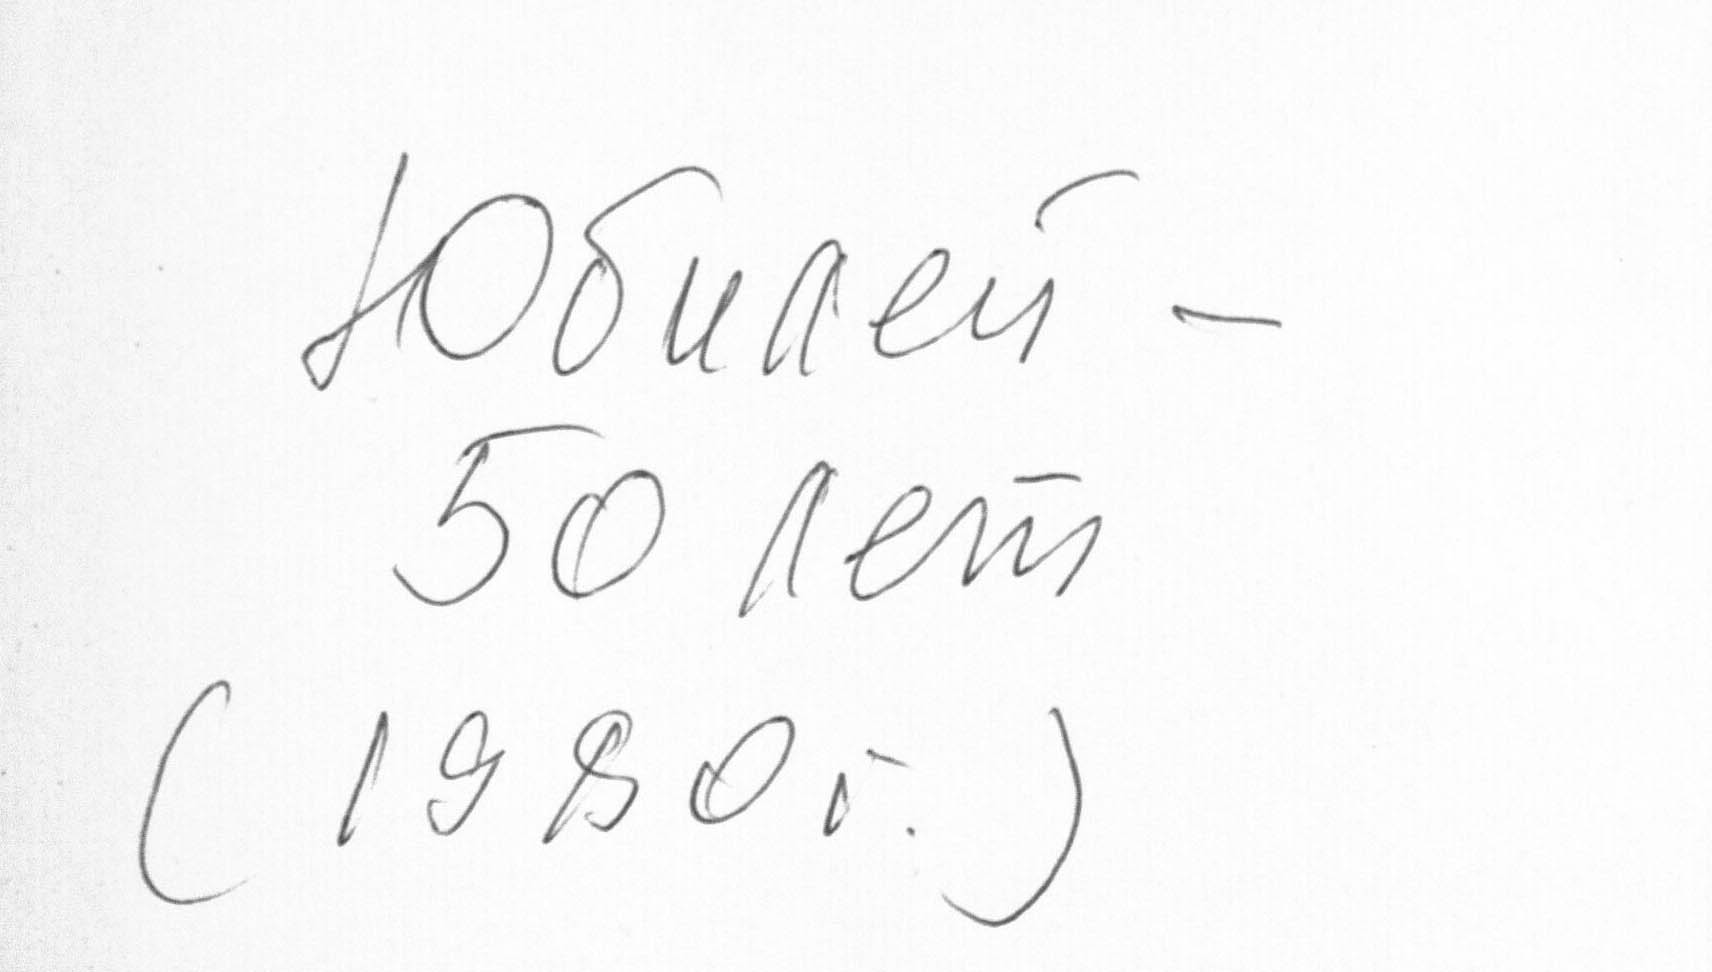 Юбилей -
50 лет
(1980г.)